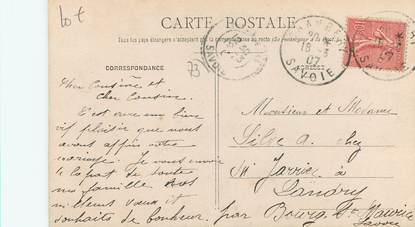 lot
CARTE POSTALE
Tous les pays étrangers n'acceptent pas la correspondance au recto
CHAMBERY
18
07
SAVOIE
SAVOIE
CORRESPONDANCE
73
Cher Cousine et
cher Cousin.
C'est avec un bien
vif plaisir que nous
avons appris votre
mariage. Je vous envoie
la part de toute
ma famille nos
meilleurs vœux et
souhaits de bonheur.
Monsieur et Madame
Silve A. chez
Mr Jarrise à
Landry
par Bourg St Maurice
Savoie